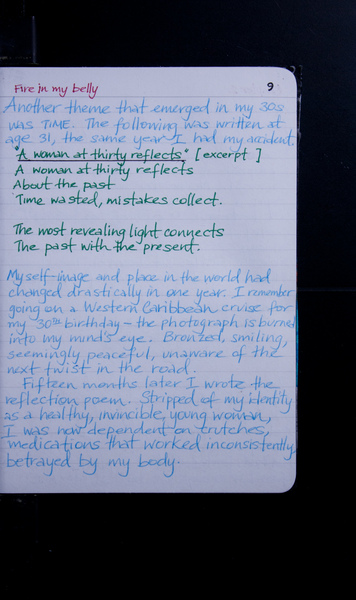 Fire in my belly
9
Another theme that emerged in my 30s
was TIME. The following was written at
age 31, the same year I had my accident.
"A woman at thirty reflects" [excerpt]
A woman at thirty reflects
About the past
Time wasted, mistakes collect.
The most revealing light connects
The past with the present.
My self-image and place in the world had
changed drastically in one year. I remember
going on a Western Caribbean cruise for
my 30th birthday - the photograph is burned
into my mind's eye. Bronzed, smiling,
seemingly peaceful, unaware of the
next twist in the road.
Fifteen months later I wrote the
reflection poem. Stripped of my identity
as a healthy, invincible, young woman,
I was now dependent on crutches,
medications that worked inconsistently,
betrayed by my body.